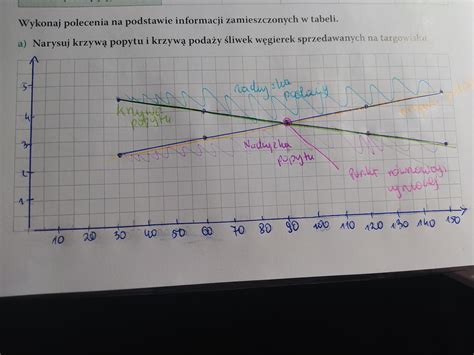 Wykonaj polecenia na podstawie informacji zamieszczonych w tabeli.
a) Narysuj krzywą popytu i krzywą podaży śliwek węgierek sprzedawanych na targowisku.
5
4
3
2
1
nadwyżka
podaży
Krzywa
popytu
Nadwyżka
popytu
Punkt równowagi
rynkowej
10 20 30 40 50 60 70 80 90 100 110 120 130 140 150